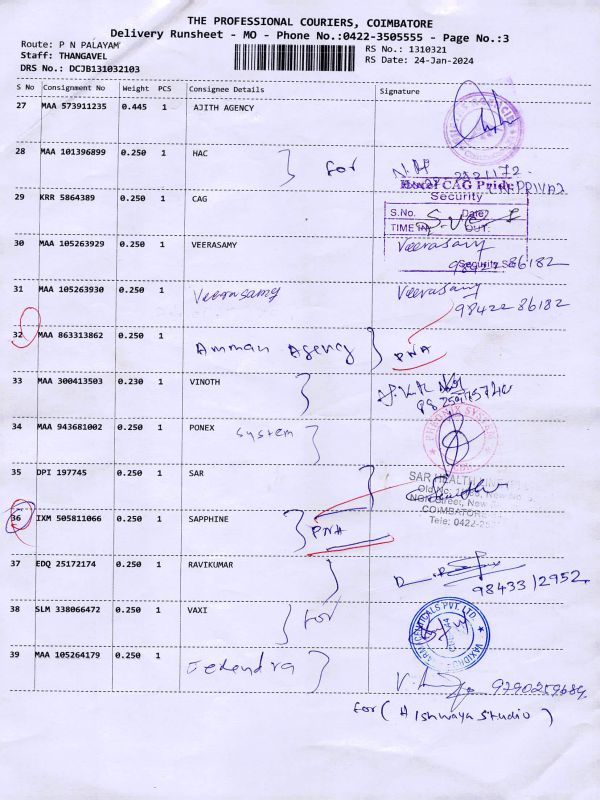 THE PROFESSIONAL COURIERS, COIMBATORE
Delivery Runsheet - MO - Phone No.:0422-3505555 - Page No.:3
Route: P N PALAYAM RS No.: 1310321
Staff: THANGAVEL RS Date: 24-Jan-2024
DRS No.: DCJB131032103
S No Consignment No Weight PCS Consignee Details Signature
27 MAA 573911235 0.445 1 AJITH AGENCY
28 MAA 101396899 0.250 1 HAC for
29 KRR 5864389 0.250 1 CAG
Hotel CAG Pride
Security
S.No. Date
TIME IN OUT:
Security S
30 MAA 105263929 0.250 1 VEERASAMY Veerasamy
86182
31 MAA 105263930 0.250 1 Veerasamy Veerasamy
98422 86182
32 MAA 863313862 0.250 1 Amman Agency PNA
33 MAA 300413503 0.230 1 VINOTH
34 MAA 943681002 0.250 1 PONEX System
35 DPI 197745 0.250 1 SAR
SAR HEALTH
Old No.
NGN Street, New
COIMBATORE
Tele: 0422-25
36 IXM 505811066 0.250 1 SAPPHINE PNA
37 EDQ 25172174 0.250 1 RAVIKUMAR
98433 12952
38 SLM 338066472 0.250 1 VAXI for
39 MAA 105264179 0.250 1 Jedendra
9790259684
for ( Aishwaya Studio )